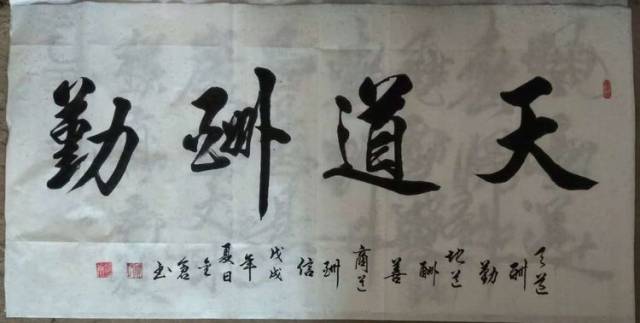 天道酬勤
天道酬勤 地道酬善 商道酬信 戊戌年夏日 金仓书